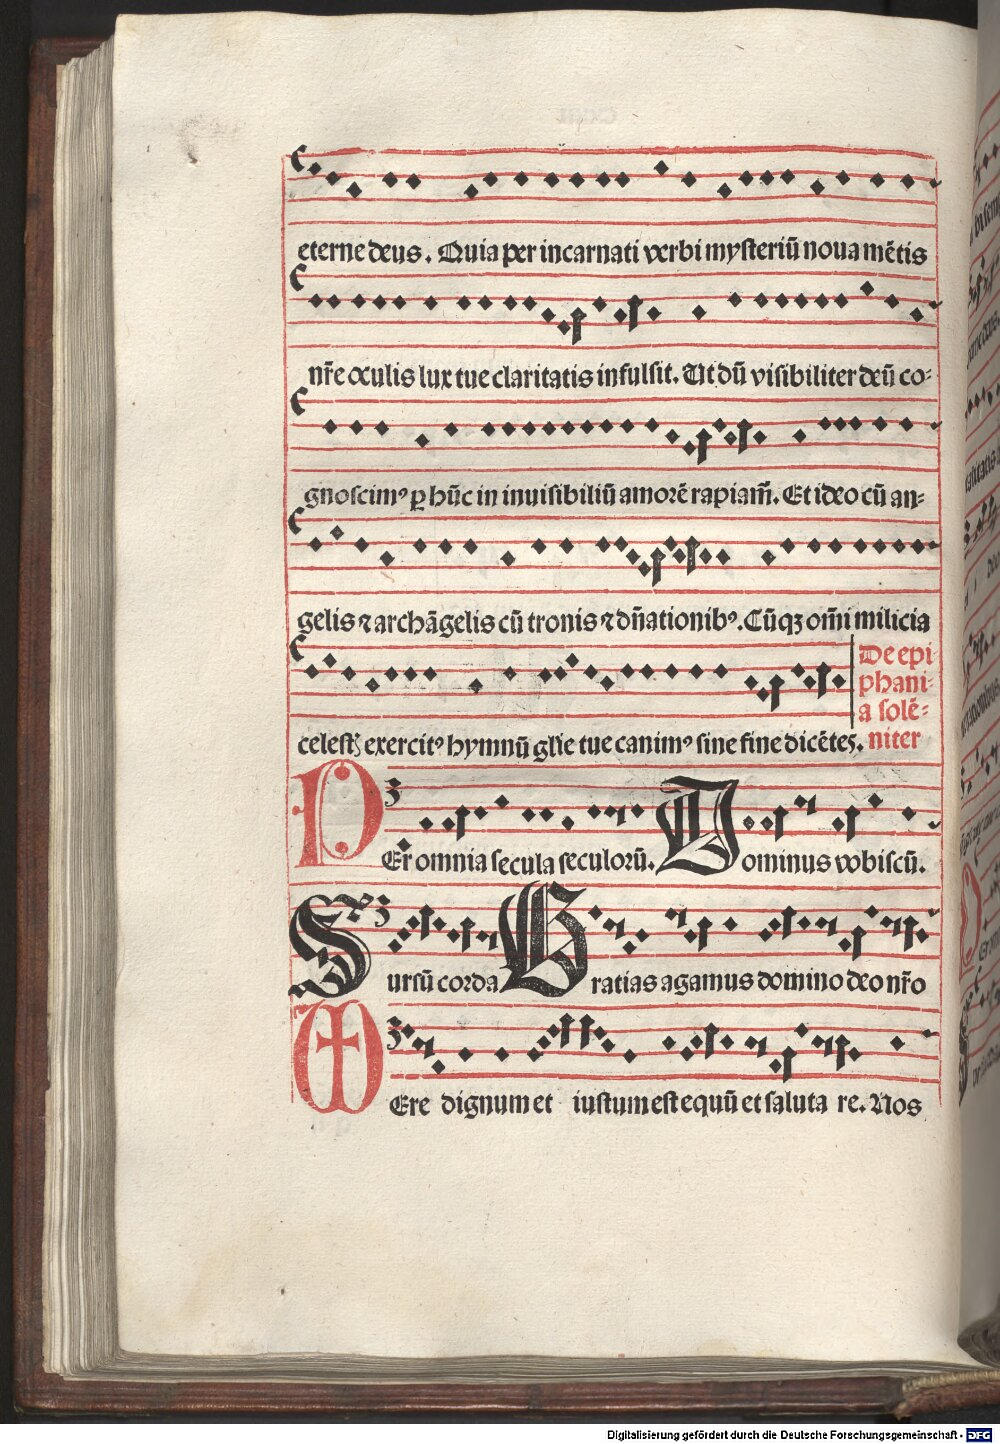 eterne deus. Quia per incarnati verbi mysteriū noua mētis
nr̄e oculis lux tue claritatis infulsit. Ut dū visibiliter deū co-
gnoscimꝰ ꝑ hūc in inuisibiliū amorē rapiam̄. Et ideo cū an-
gelis ⁊ archāgelis cū tronis ⁊ dn̄ationibꝰ. Cūqꝫ om̄i milicia
De epi-
phani-
a solē-
niter
celest exercitꝰ hymnū glīe tue canimꝰ sine fine dicētes.
PEr omnia secula seculorū. Dominus vobiscū.
Sursū corda Gratias agamus domino deo nr̄o
VEre dignum et iustum est equū et saluta re. Nos
Digitalisierung gefördert durch die Deutsche Forschungsgemeinschaft - DFG